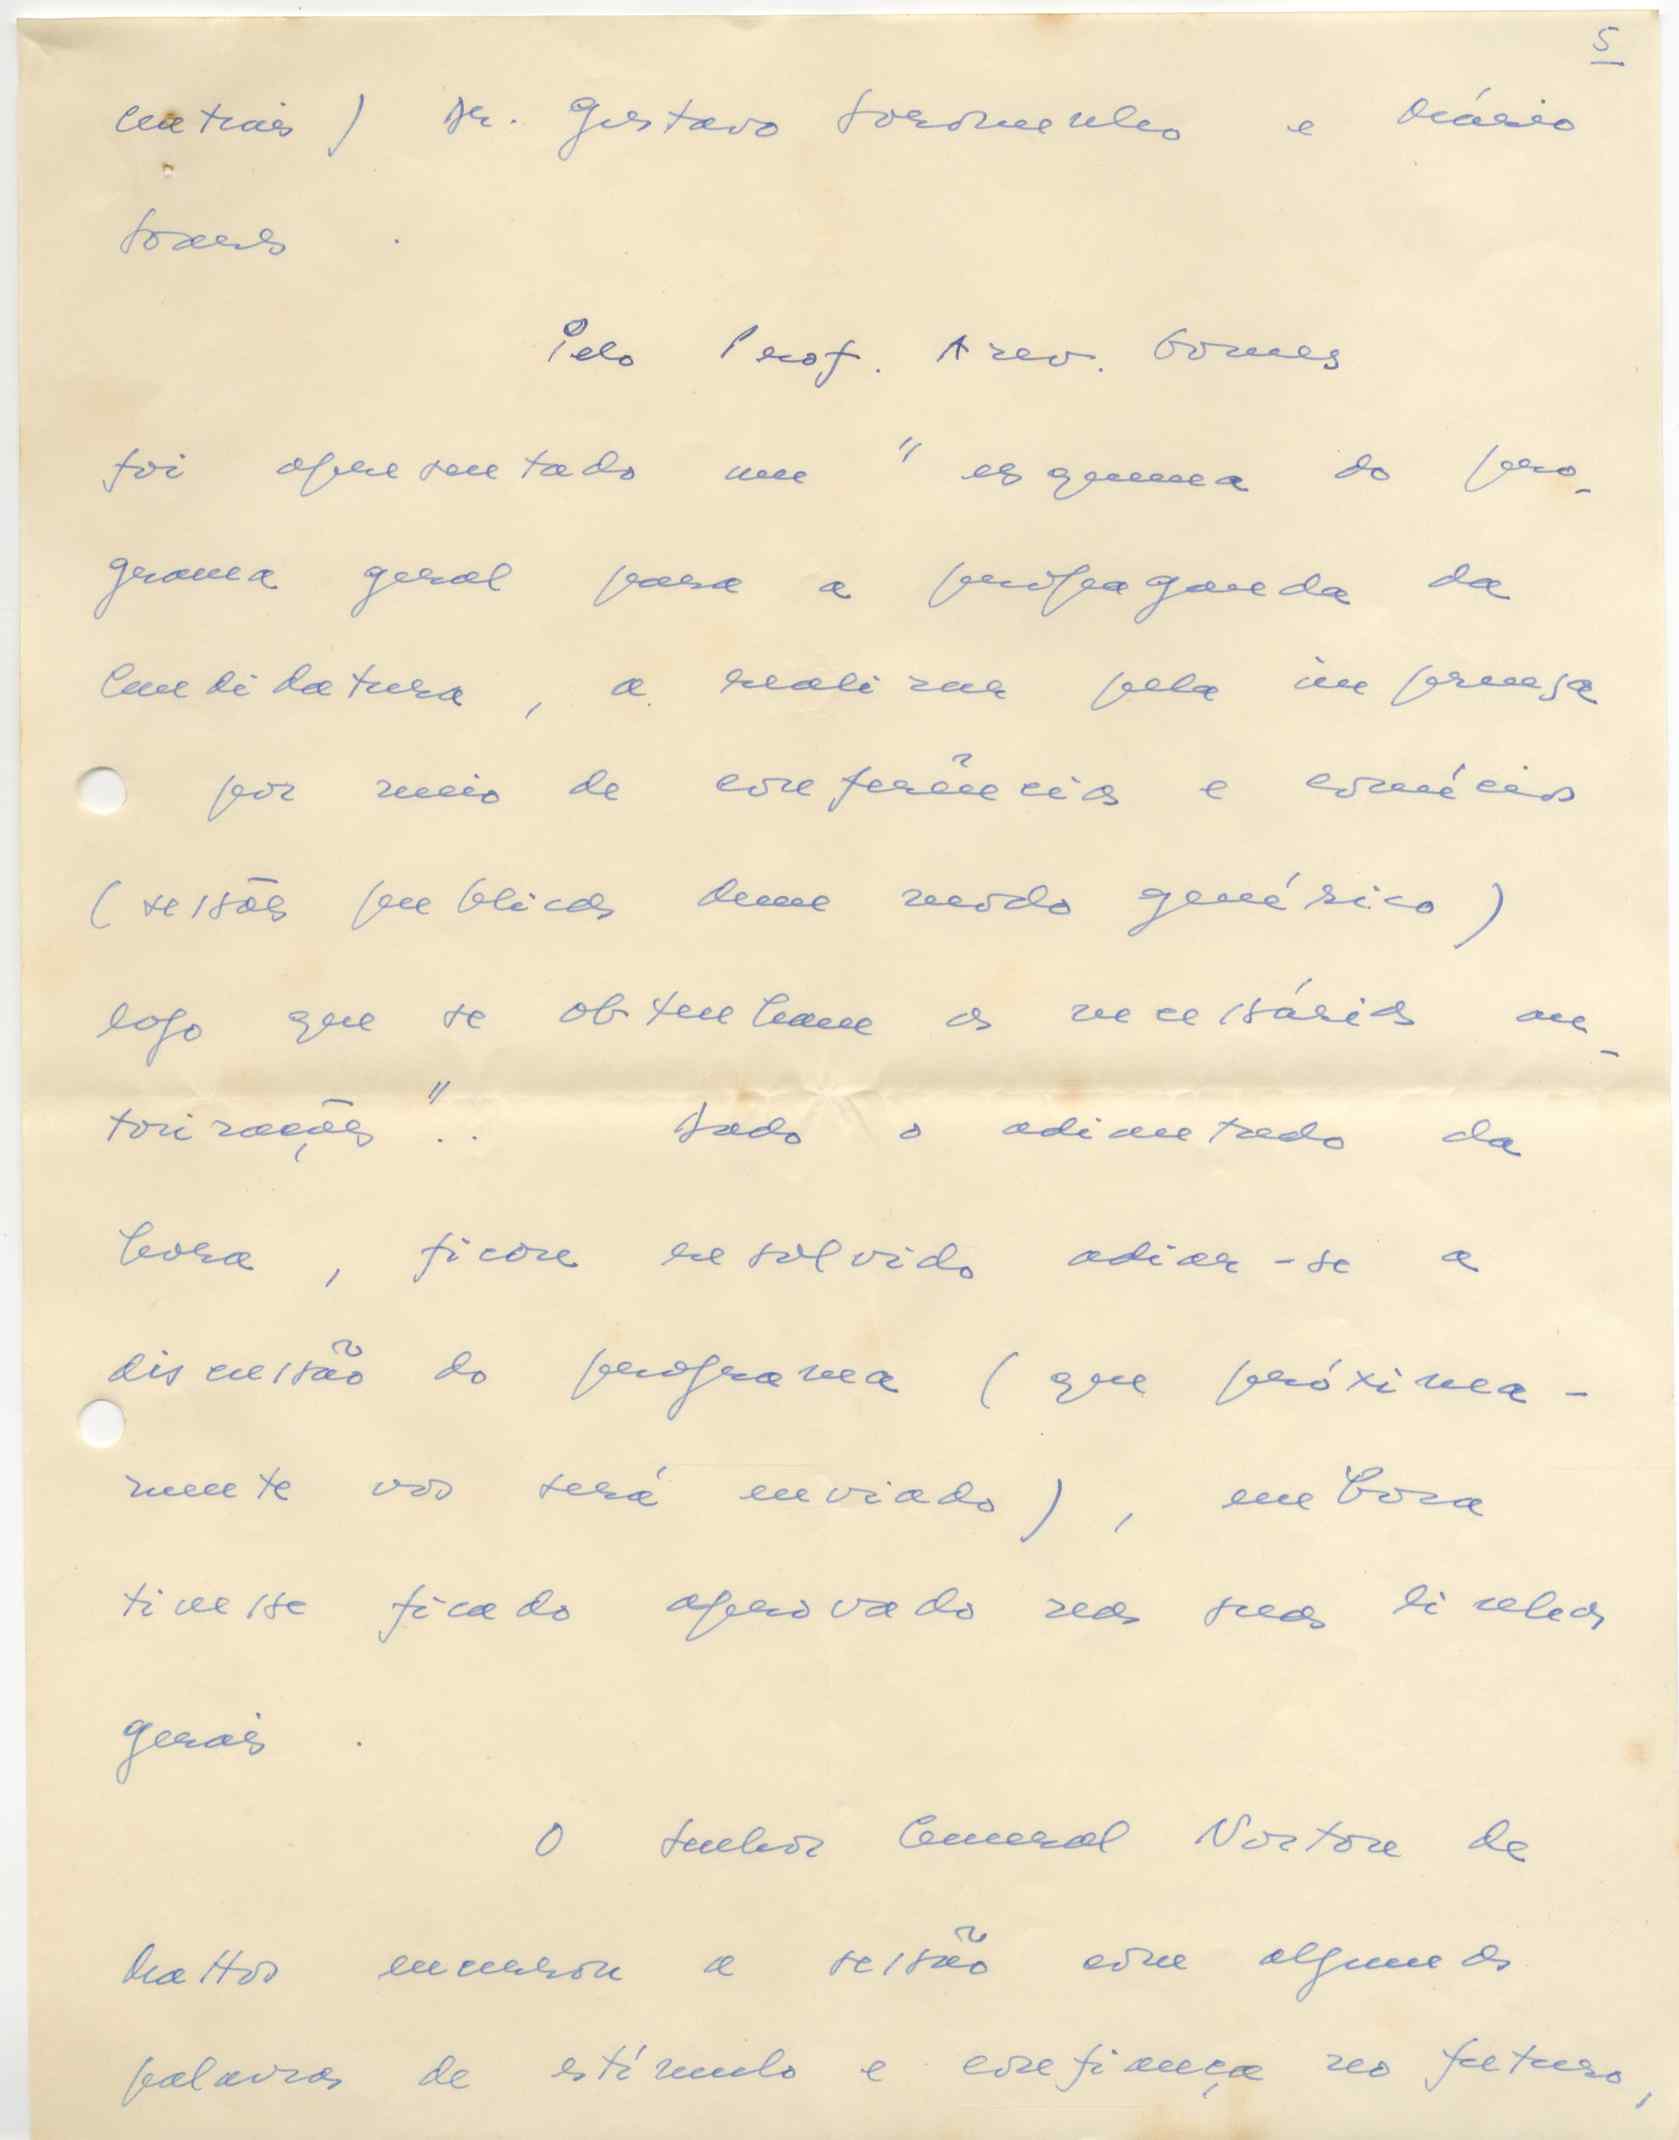 5
centrais) Dr. Gustavo Soromenho e Mário
Soares .
Pelo Prof. Azev. Gomes
foi apresentado um "esquema do pro-
grama geral para a propaganda da
Candidatura, a realizar pela imprensa
por meio de conferências e comícios
(sessões publicas dum modo genérico)
logo que se obtenham as necessárias au-
torizações".. Dado o adiantado da
hora, ficou resolvido adiar-se a
discussão do programa (que próxima-
mente vos será enviado), embora
tivesse ficado aprovado nas suas linhas
gerais .
O Senhor General Norton de
Mattos encerrou a sessão com algumas
palavras de estímulo e confiança no futuro,